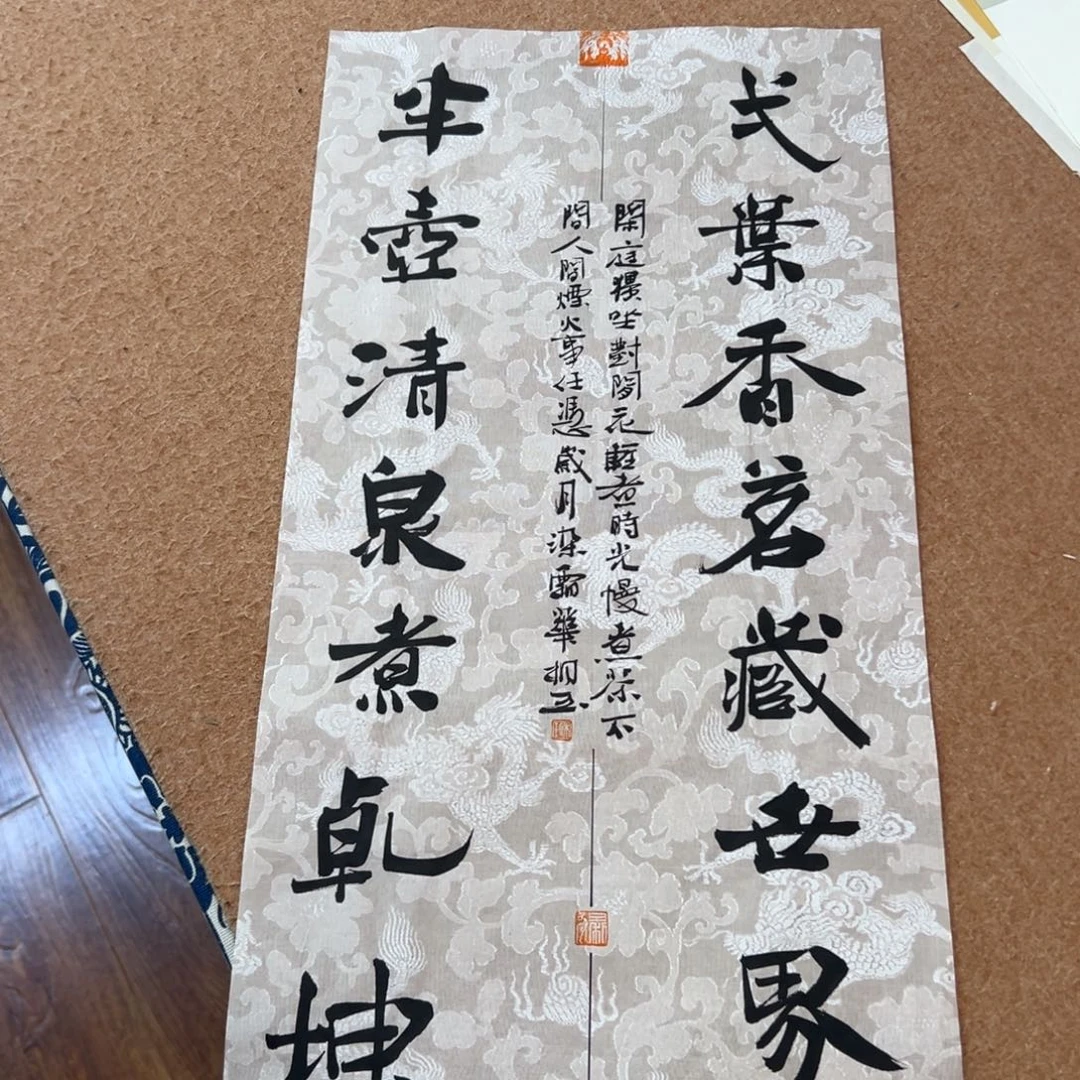 弌葉香茗藏世界
閑庭獨坐對閑花輕煮時光慢煮茶不
問人間煙火事任憑歲月染霜華
半壺清泉煮乾坤